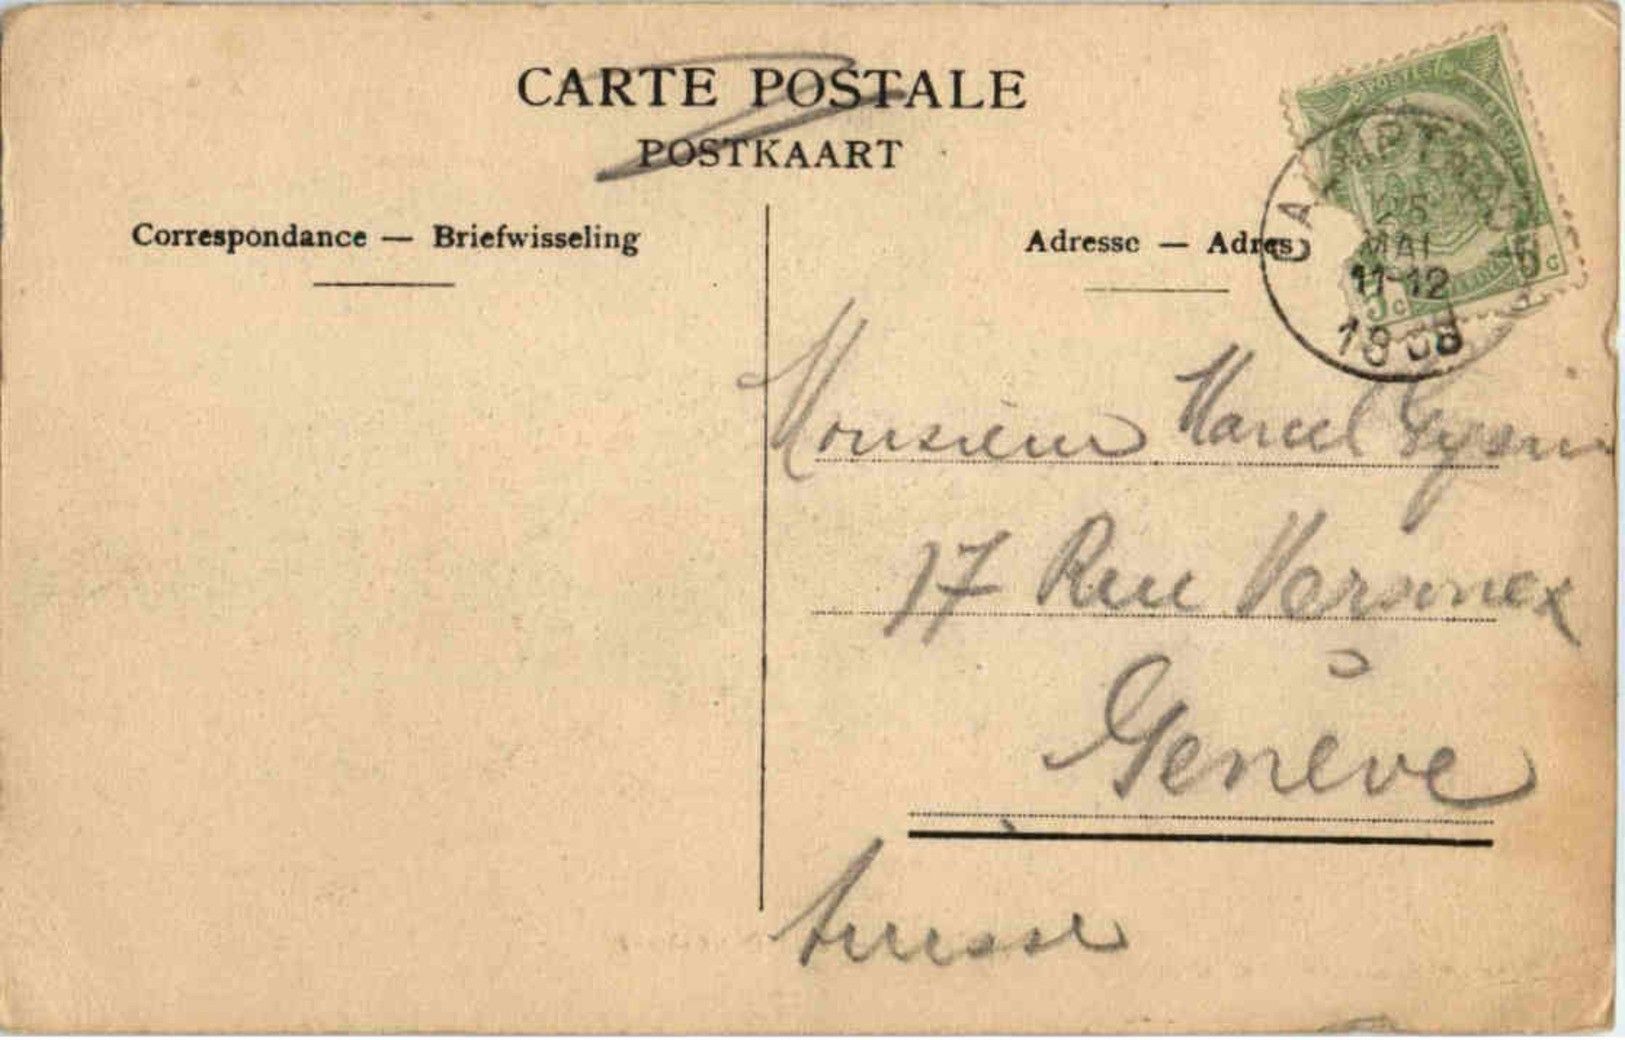 CARTE POSTALE
POSTKAART
Correspondance — Briefwisseling
Adresse — Adres
25
MAI
11-12
1908
5c
5c
Monsieur Marcel Gysin
17 Rue Versonnex
Genève
Suisse